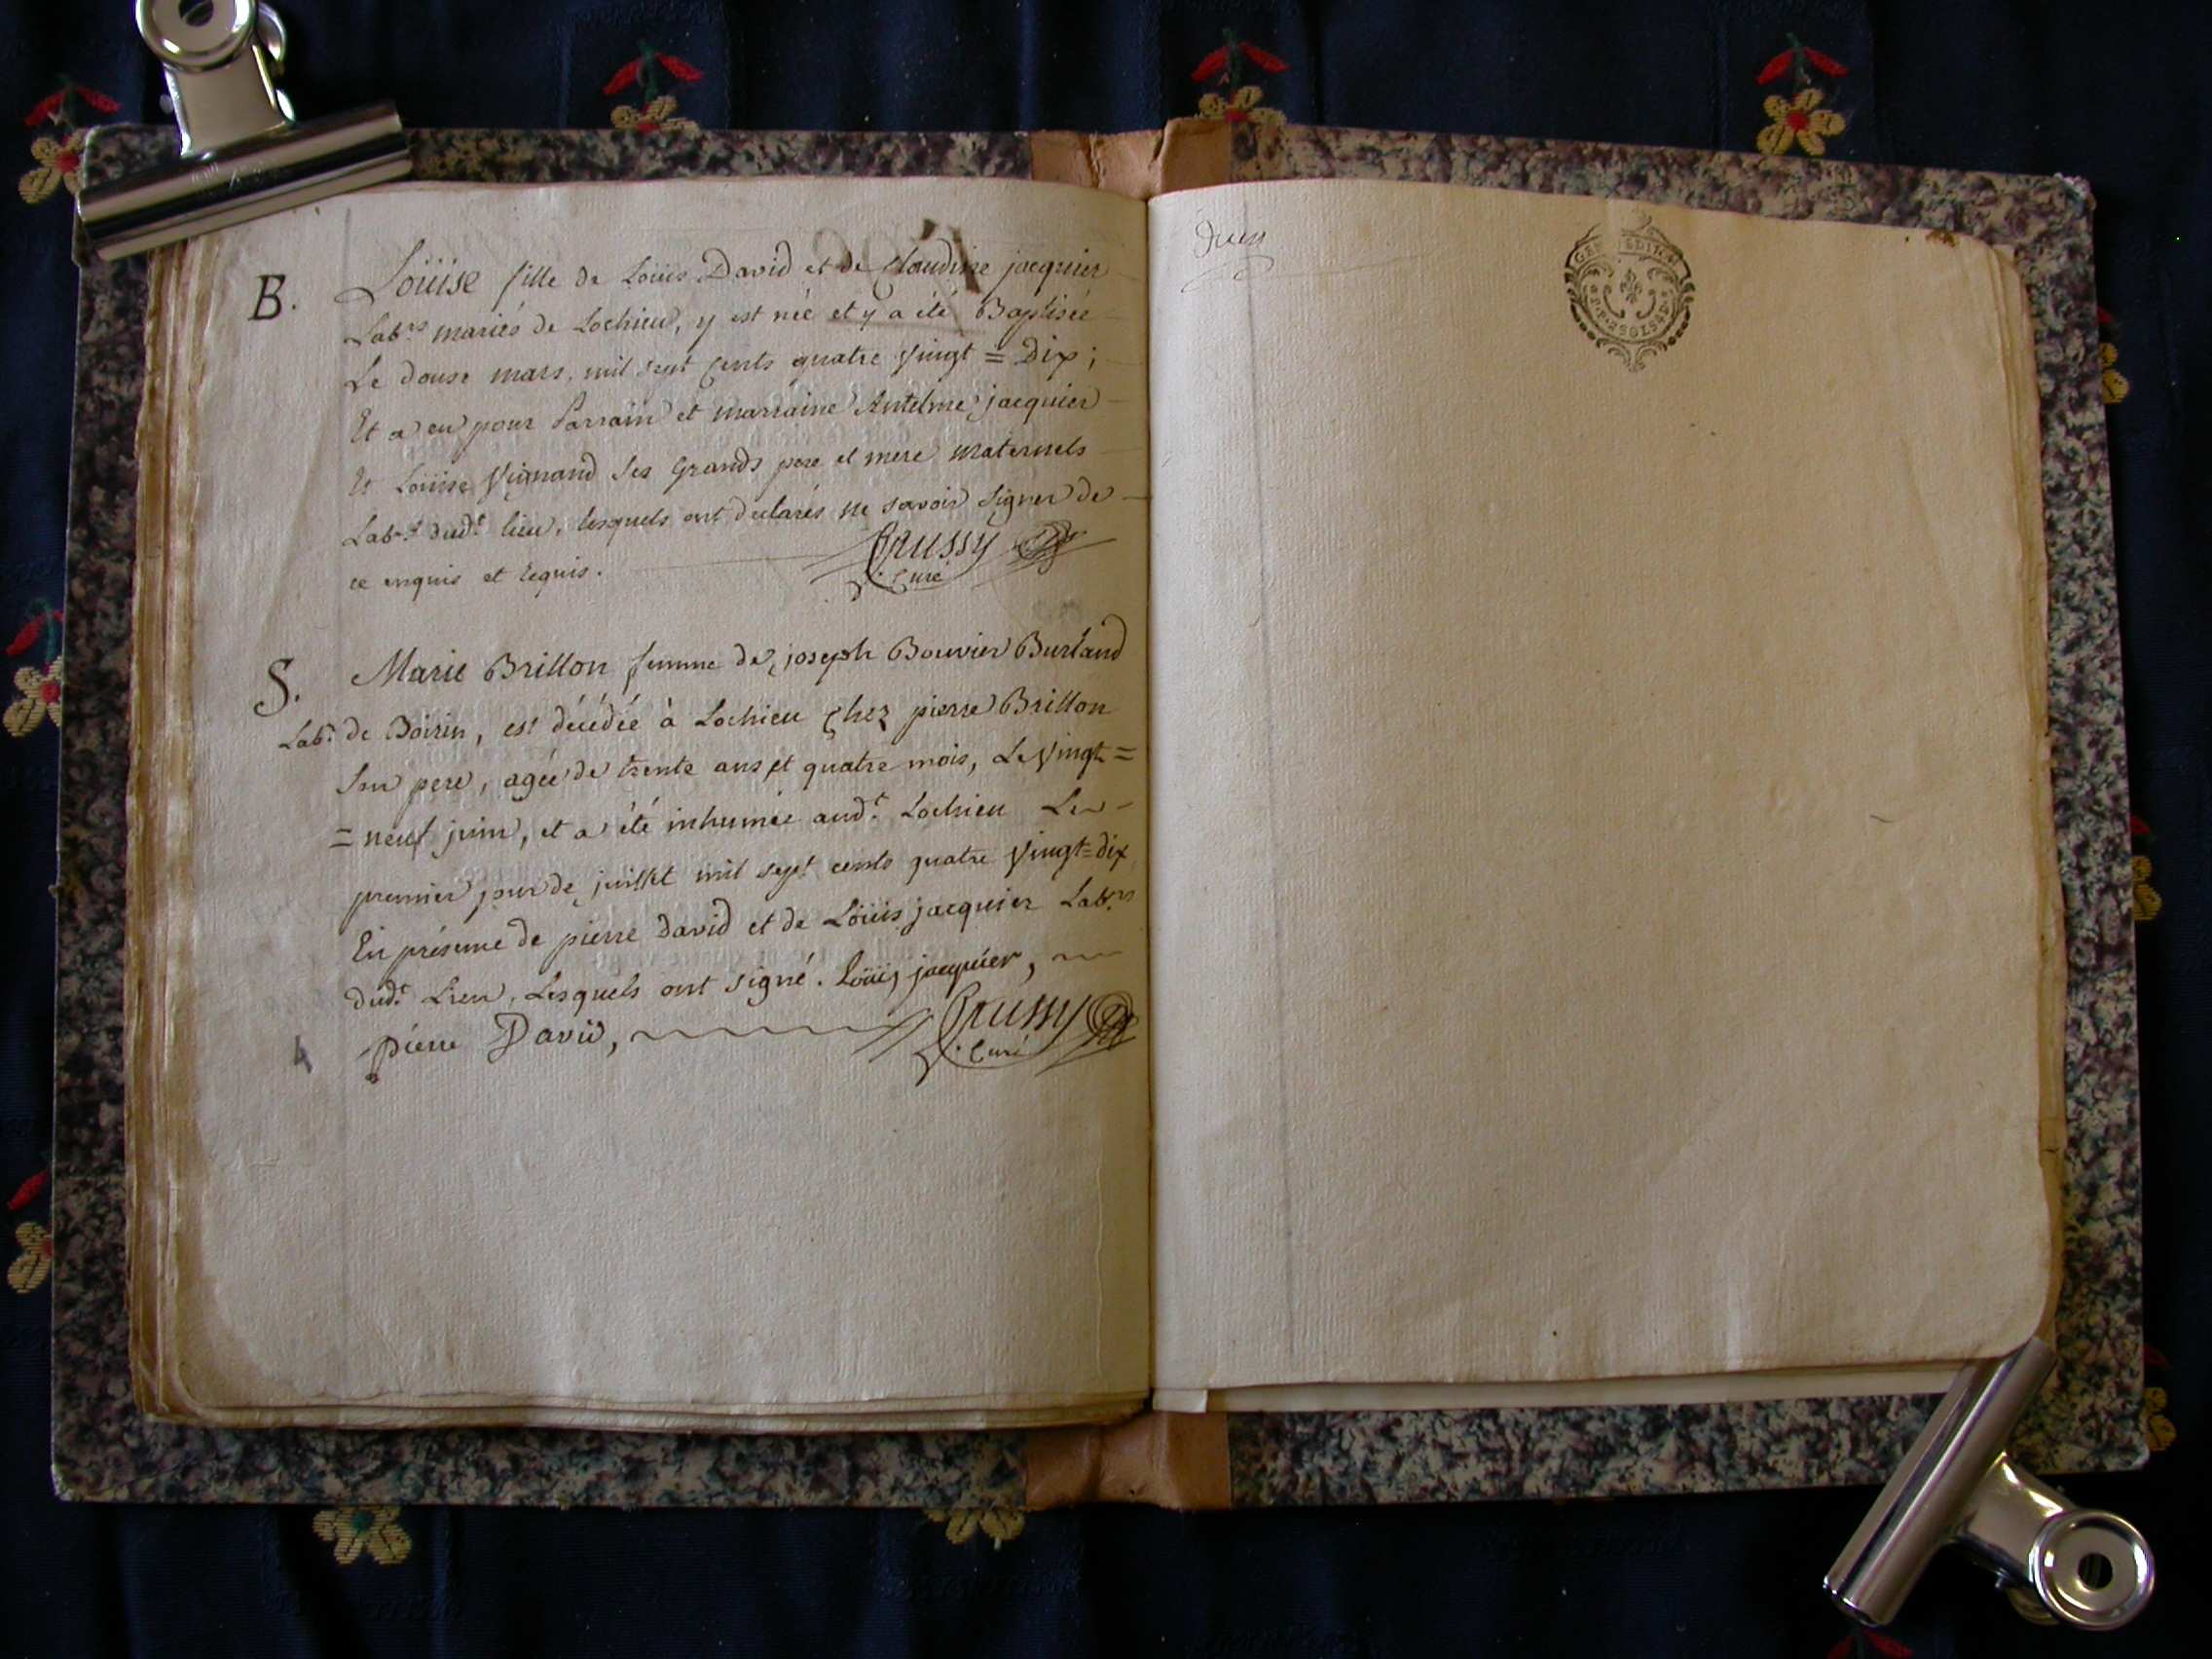 B. Loüise fille de Loüis David et de Claudine jacquier
Lab.rs mariés de Lochieu, y est née et y a été Baptisée
Le douse mars, mil sept cents quatre vingt = Dix;
Et a eu pour Parrain et marraine Antelme jacquier
Et Loüise Vignand Ses Grands pere et mere maternels
Lab.rs dud.t lieu, lesquels ont declarés ne savoir signer de
ce enquis et Requis. Crussy
Curé
S. Marie Brillon femme de joseph Bouvier Burland
Lab.r de Boirin, est décédée à Lochieu chez pierre Brillon
Son pere, agée de trente ans et quatre mois, Le vingt =
= neuf juin, et a été inhumée aud.t Lochieu Le
premier jour de juillet mil sept cents quatre vingt=dix
En présence de pierre David et de Loüis jacquier Lab.rs
dud.t Lieu, Lesquels ont signé. Loüis jacquier,
pierre David, Crussy
Curé
GEN
2 SOLS 4 D